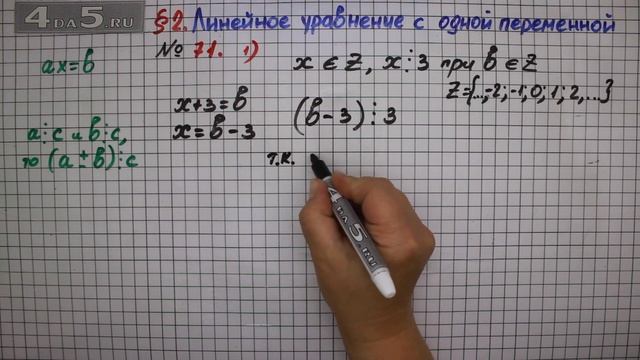 4DA5.RU
§2. Линейное уравнение с одной переменной
№ 71. 1)
ax=b
x ∈ Z, x⋮3 при b ∈ Z
Z={...,-2;-1;0;1;2,...}
x+3=b
x=b-3
(b-3)⋮3
a⋮c и b⋮c,
то (a±b)⋮c
т.к.
4DA5.RU